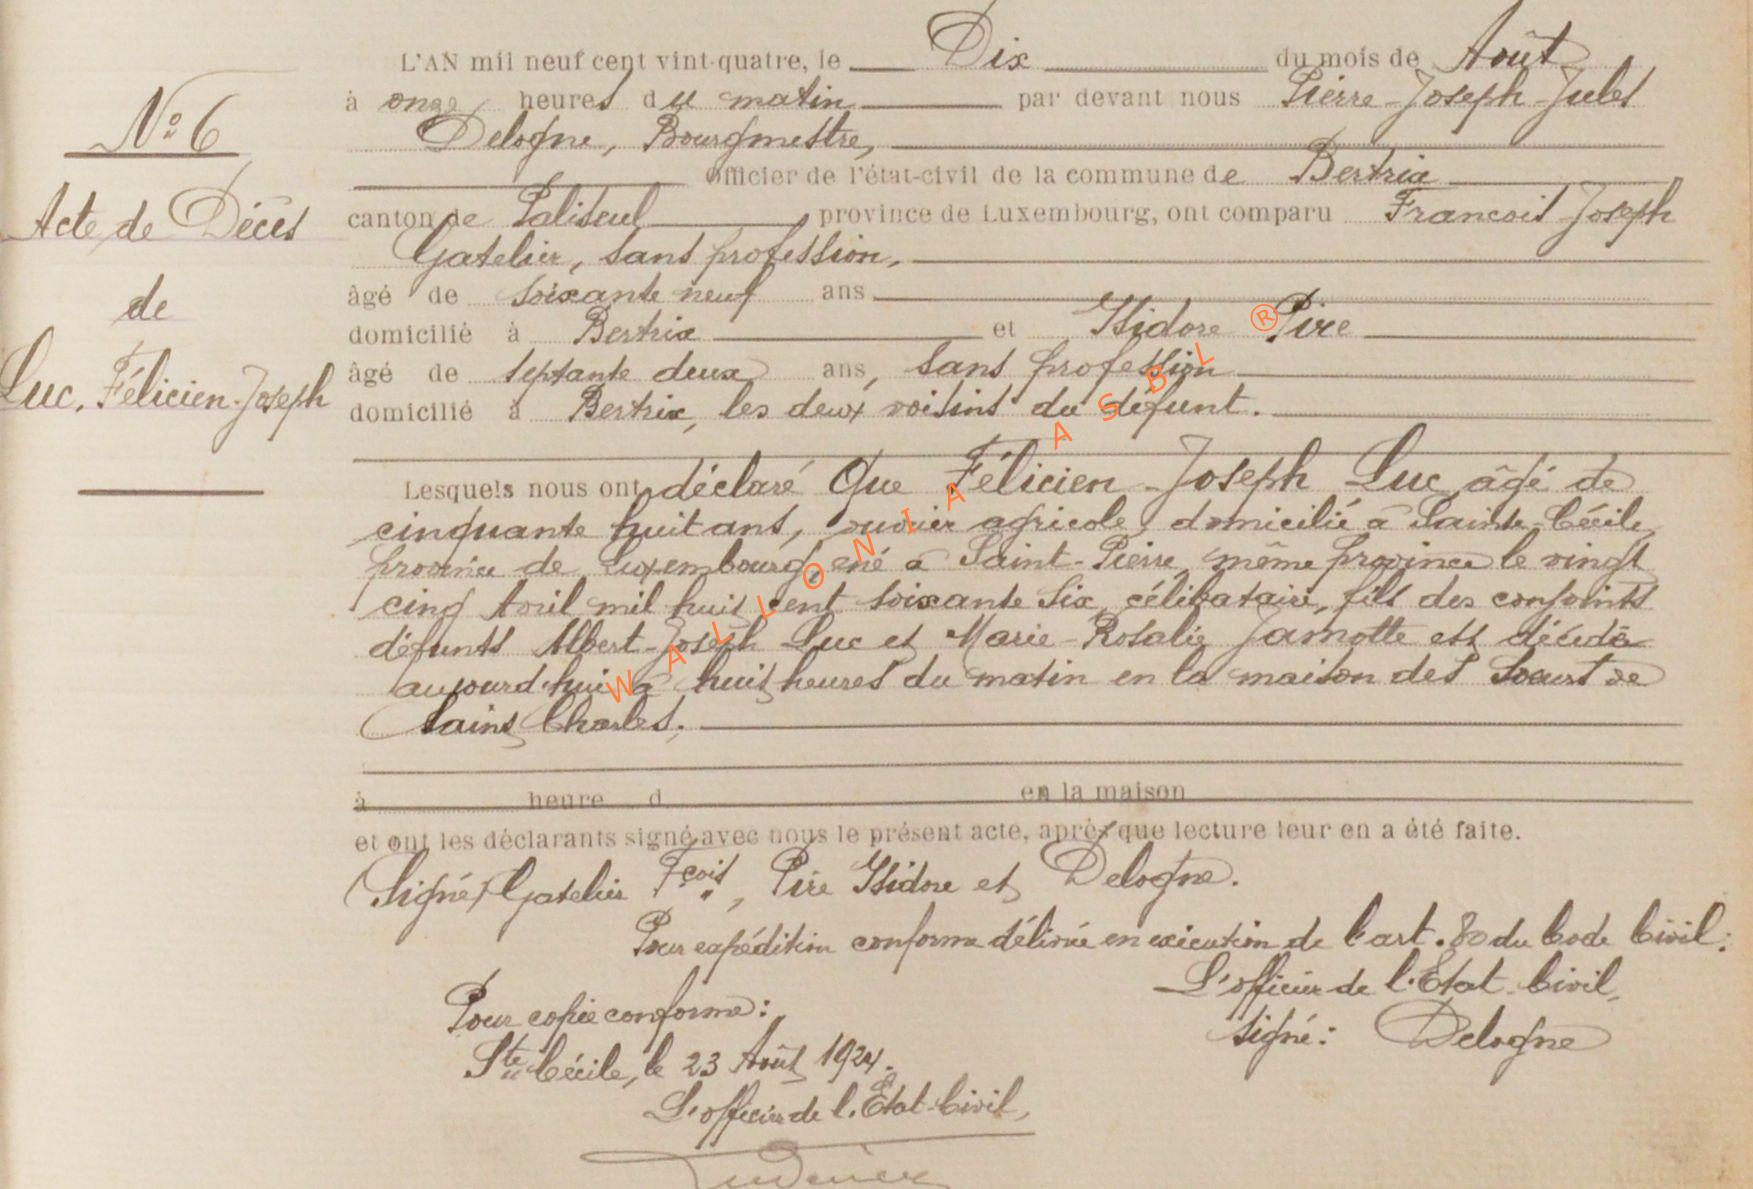 L'AN mil neuf cent vint-quatre, le Dix du mois de Août
à onze heures du matin par devant nous Pierre-Joseph-Jules
Delogne, Bourgmestre,
Officier de l'état-civil de la commune de Bertrix
canton de Paliseul, province de Luxembourg, ont comparu Francois Joseph
Gatelier, sans profession,
âgé de soixante neuf ans
domicilié à Bertrix et Isidore Pire
âgé de septante deux ans, sans profession
domicilié à Bertrix, les deux voisins du défunt.
N° 6
Acte de Décès
de
Luc, Félicien-Joseph
Lesquels nous ont déclaré que Félicien-Joseph Luc, âgé de
cinquante huit ans, ouvrier agricole, domicilié à Sainte-Cécile,
province de Luxembourg, né à Saint-Pierre, même province le vingt
cinq Avril mil huit cent soixante six, célibataire, fils des conjoints
défunts Albert-Joseph Luc et Marie-Rosalie Jamotte est décédé
aujourd'hui à huit heures du matin en la maison des Soeurs de
Saint Charles.
à heure d en la maison
et ont les déclarants signé avec nous le présent acte, après que lecture leur en a été faite.
(Signé) Gatelier Fçois, Pire Isidore et Delogne.
Pour expédition conforme délivrée en exécution de l'art. 80 du Code Civil:
L'officier de l'Etat-Civil,
signé: Delogne
Pour copie conforme:
Ste Cécile, le 23 Août 1924.
L'officier de l'Etat-Civil,
WALLONIA ASBL ®